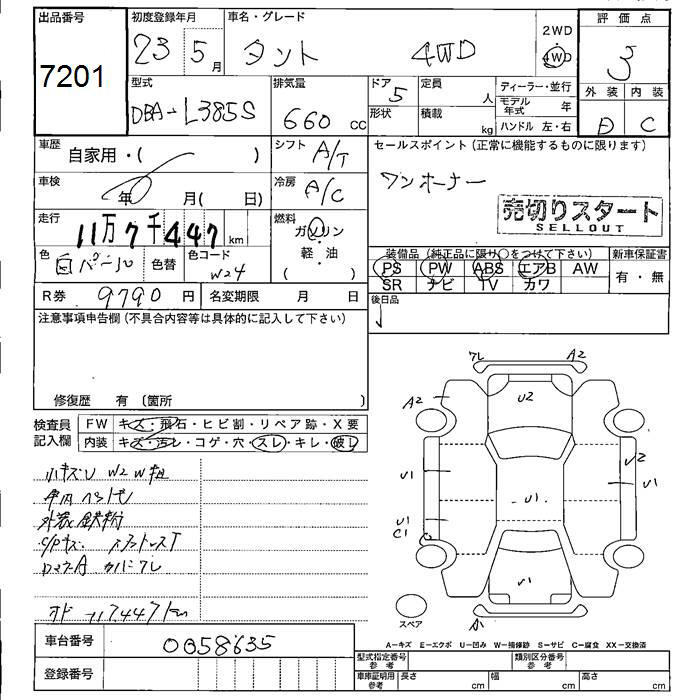 出品番号
7201
初度登録年月
23 5月
車名・グレード
タント 4WD
2WD
4WD
評価点
3
外装 内装
D C
型式
DBA-L385S
排気量
660 cc
ドア
5
形状
定員 人
積載 kg
ディーラー・並行
モデル年式 年
ハンドル 左・右
車歴
自家用・( )
シフト
A/T
車検
年 月( 日)
冷房
A/C
走行
11万7千447 km
燃料
ガソリン
軽・油
( )
色
白パール
色替
色コード
W24
R券 9790 円
名変期限 月 日
セールスポイント(正常に機能するものに限ります)
ワンオーナー
売切りスタート
SELLOUT
装備品(純正品に限り○をつけて下さい)
PS PW ABS エアB AW
SR ナビ TV カワ
新車保証書
有・無
後日品
注意事項申告欄(不具合内容等は具体的に記入して下さい)
修復歴 有〔箇所 〕
検査員記入欄
FW キズ・飛石・ヒビ割・リペア跡・X要
内装 キズ・汚レ・コゲ・穴・スレ・キレ・破レ
小キズU W2 W粗
外装鉄粉
117447km
車台番号 0058635
登録番号
ワレ A2
A2 U2
U1 U1 U2 U1
U1
C1
U1
スペア
A
A-キズ E-エクボ U-凹み W-補修跡 S-サビ C-腐食 XX-交換済
型式指定番号 参考
類別区分番号 参考
車庫証明用 参考
長さ cm
幅 cm
高さ cm